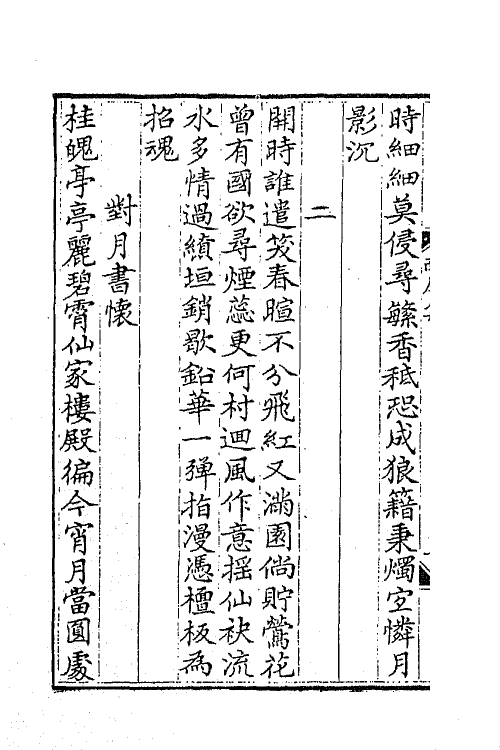 時細細莫侵尋繁香秪恐成狼籍秉燭空憐月
影沉
二
開時誰遣笑春暄不分飛紅又滿園倘貯鶯花
曾有國欲尋煙蕊更何村迴風作意揺仙袂流
水多情過繢垣銷歇鉛華一彈指漫憑檀板為
招魂
對月書懷
桂魄亭亭麗碧霄仙家樓殿徧今宵月當圓處